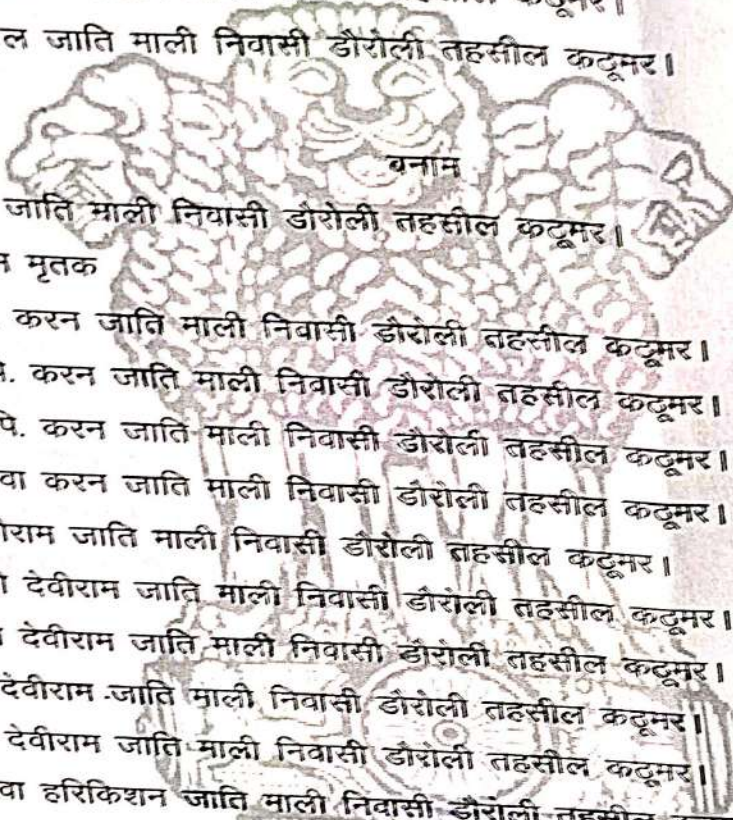 कठूमर।
ल जाति माली निवासी डौरोली तहसील कठूमर।
बनाम
जाति माली निवासी डोरोली तहसील कठूमर।
मृतक
करन जाति माली निवासी डौरोली तहसील कठूमर।
करन जाति माली निवासी डौरोली तहसील कठूमर।
पि. करन जाति माली निवासी डौरोली तहसील कठूमर।
वा करन जाति माली निवासी डौरोली तहसील कठूमर।
ीराम जाति माली निवासी डौरोली तहसील कठूमर।
देवीराम जाति माली निवासी डौरोली तहसील कठूमर।
देवीराम जाति माली निवासी डौरोली तहसील कठूमर।
देवीराम जाति माली निवासी डौरोली तहसील कठूमर।
देवीराम जाति माली निवासी डौरोली तहसील कठूमर।
वा हरिकिशन जाति माली निवासी डौरोली तहसील